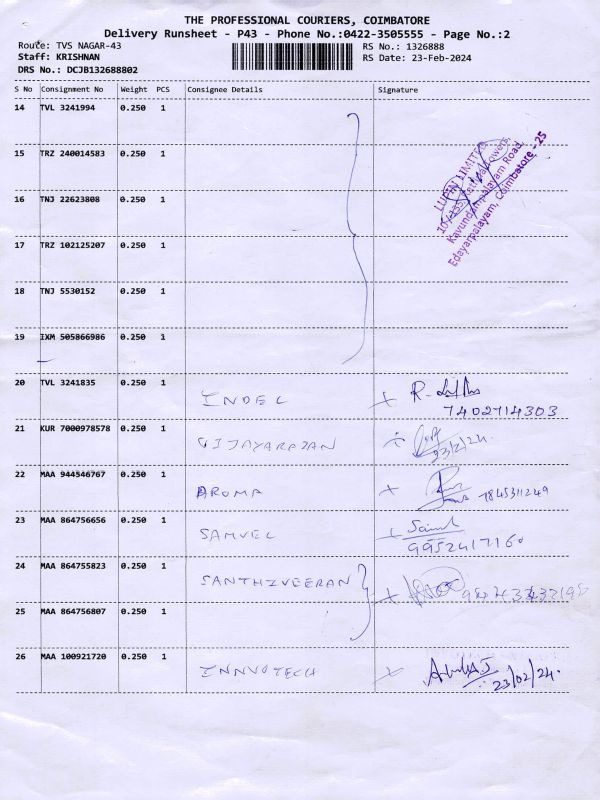 THE PROFESSIONAL COURIERS, COIMBATORE
Delivery Runsheet - P43 - Phone No.:0422-3505555 - Page No.:2
Route: TVS NAGAR-43
RS No.: 1326888
Staff: KRISHNAN
RS Date: 23-Feb-2024
DRS No.: DCJB132688802
S No Consignment No Weight PCS Consignee Details Signature
14 TVL 3241994 0.250 1
15 TRZ 240014583 0.250 1
16 TNJ 22623808 0.250 1
17 TRZ 102125207 0.250 1
18 TNJ 5530152 0.250 1
19 IXM 505866986 0.250 1
LUPIN LIMITED
Kavundampalayam Road,
Edayarpalayam, Coimbatore - 25
20 TVL 3241835 0.250 1 INDEL
7402714303
21 KUR 7000978578 0.250 1 VIJAYARAJAN
23/2/24.
22 MAA 944546767 0.250 1 AROMA 7845311249
23 MAA 864756656 0.250 1 SAMVEL
9952417160
24 MAA 864755823 0.250 1 SANTHIVEERAN
25 MAA 864756807 0.250 1
26 MAA 100921720 0.250 1 INNVOTECH
23/02/24.